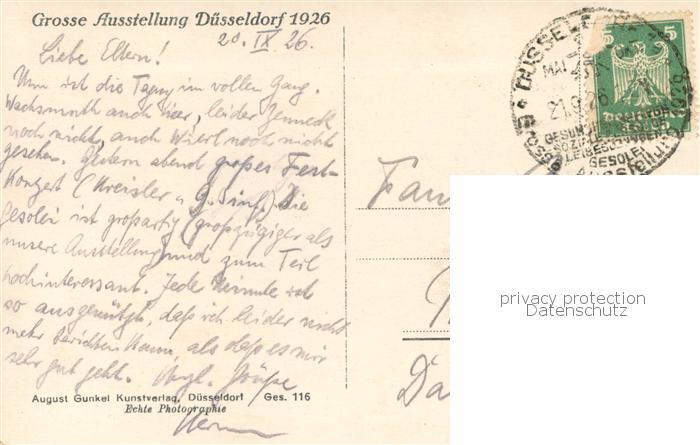 Grosse Ausstellung Düsseldorf 1926
20. IX. 26.
Liebe Eltern!
Nun ist die Tagung im vollen Gang.
Wachsmuth auch hier, leider Zenneck
noch nicht, auch Wierl noch nicht
gesehen. Gestern abend großes Fest-
Konzert (Kreisler Die
Gesolei ist großartig (großzügiger als
unsere Ausstellung) und zum Teil
hochinteressant. Jede Minute ist
so ausgenützt, daß ich leider nicht
mehr berichten kann, als daß es mir
sehr gut geht. Herzl. Grüße
August Gunkel Kunstverlag, Düsseldorf Ges. 116
Echte Photographie
DÜSSELDORF
MAI
21.9.26
1926
GESOLEI
5
privacy protection
Datenschutz